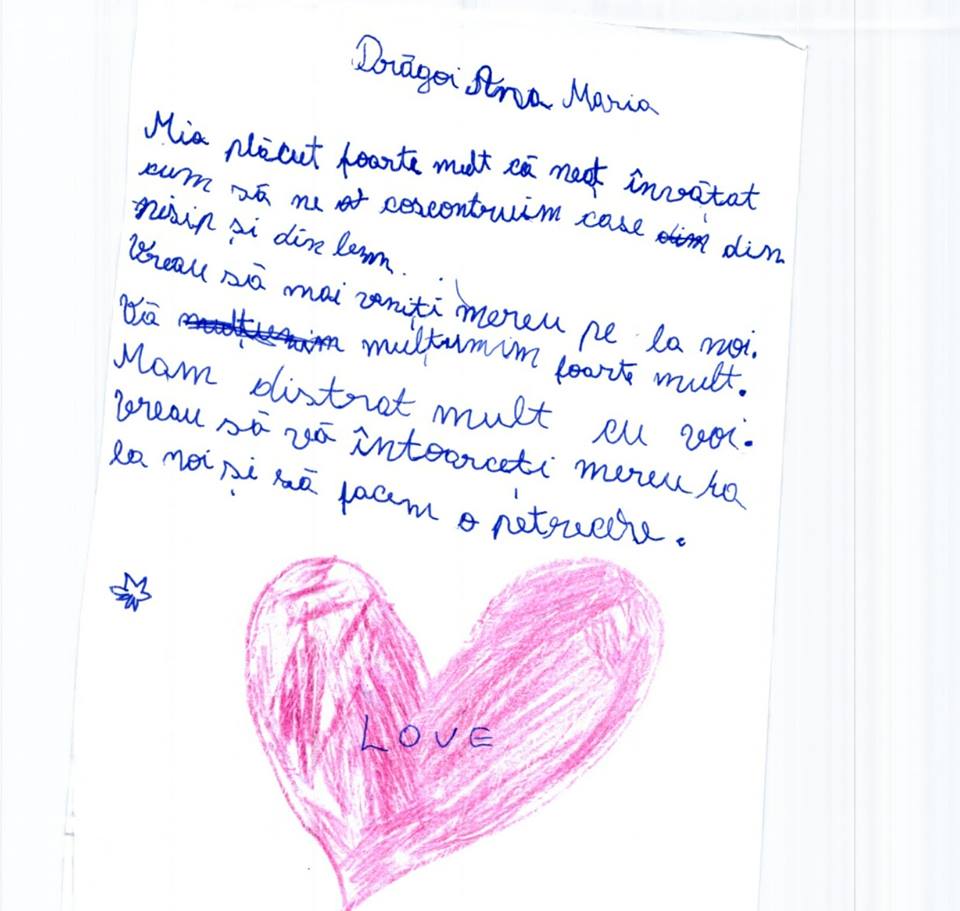 Drăgoi Ana Maria
Mia plăcut foarte mult că neaț învățat
cum să ne coscontruim case din
nisip și din lemn.
Vreau să mai veniți mereu pe la noi.
Vă mulțumim foarte mult.
Mam distrat mult cu voi.
Vreau să vă întoarceți mereu
la noi și să facem o petrecere.
LOVE